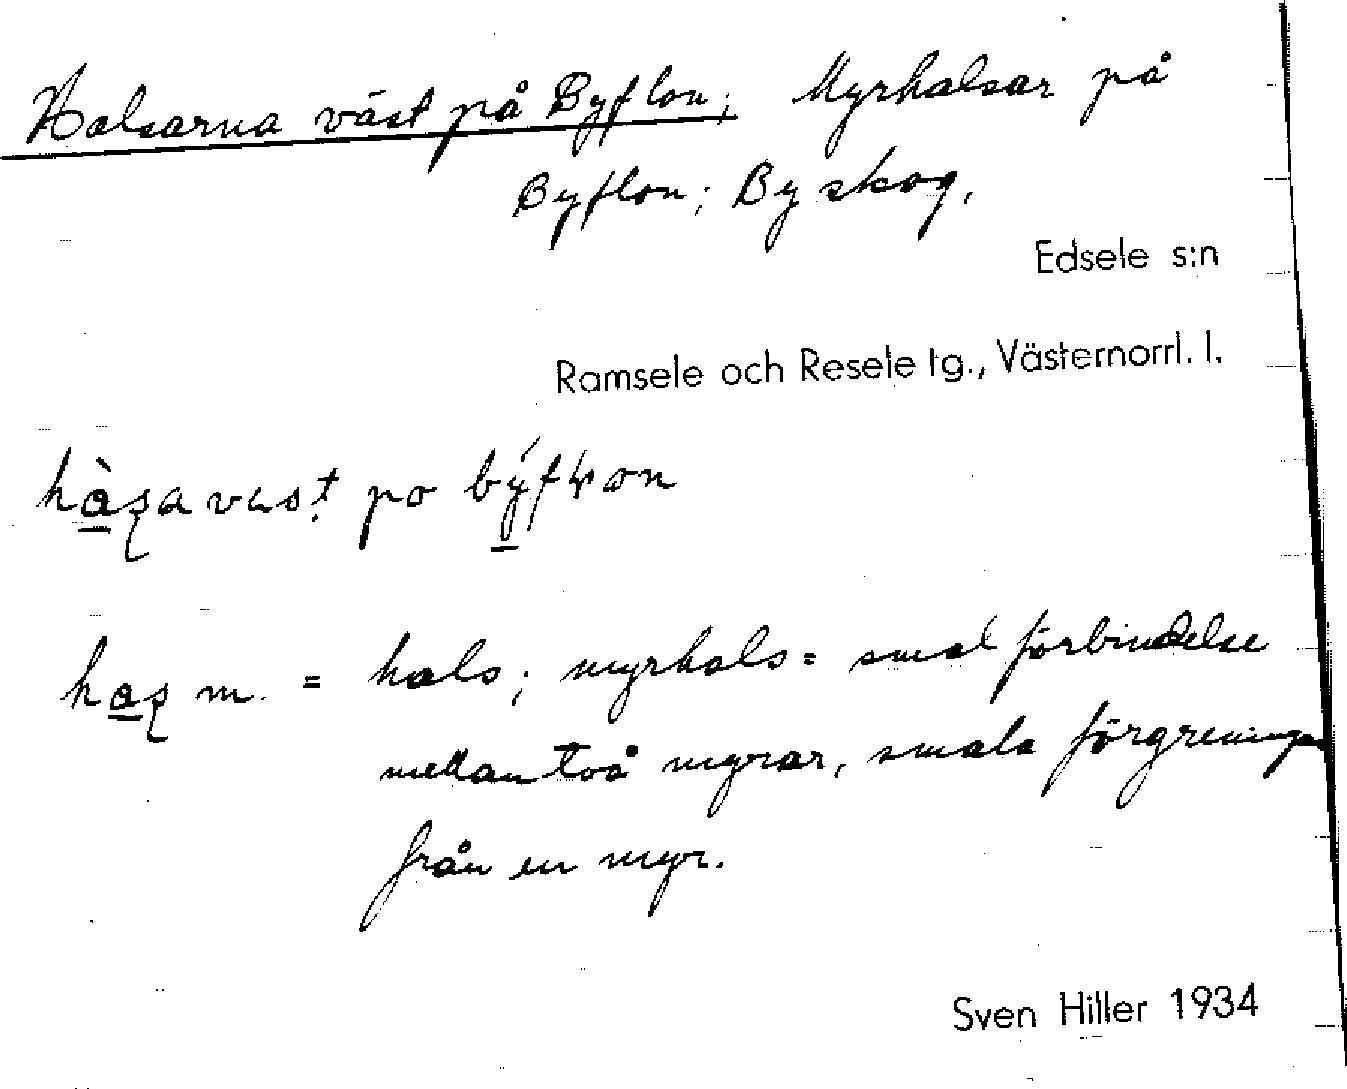 Halsarna väst på Byflon; Myrhalsar på
Byflon; By skog.
Edsele s:n
Ramsele och Resele tg., Västernorrl. l.
po
m. = hals; myrhals = smal förbindelse
mellan två myrar, smala förgreningar
från en myr.
Sven Hiller 1934